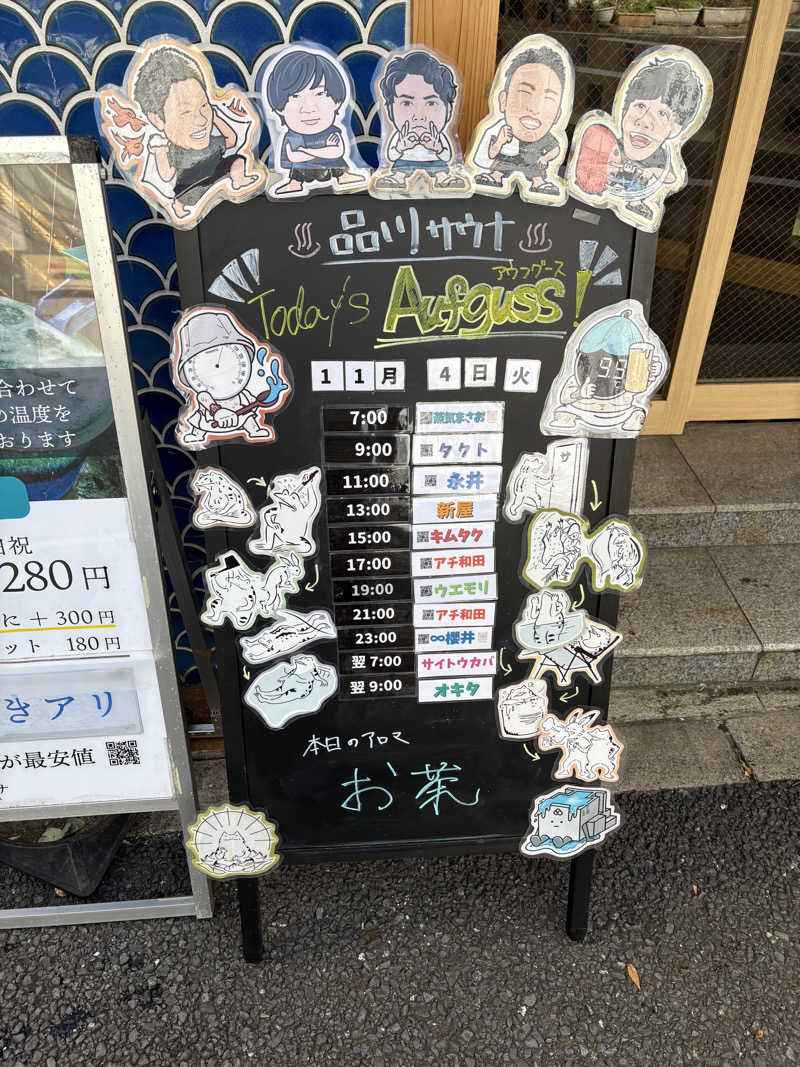 品川サウナ
アウフグース
Today's Aufguss!
11月 4日 火
7:00 蒸気まさお
9:00 タクト
11:00 永井
13:00 新屋
15:00 キムタク
17:00 アチ和田
19:00 ウエモリ
21:00 アチ和田
23:00 ∞櫻井
翌 7:00 サイトウカバ
翌 9:00 オキタ
本日のアロマ
お茶
サ
合わせて
の温度を
おります
日祝
280円
に + 300円
ット 180円
きアリ
が最安値